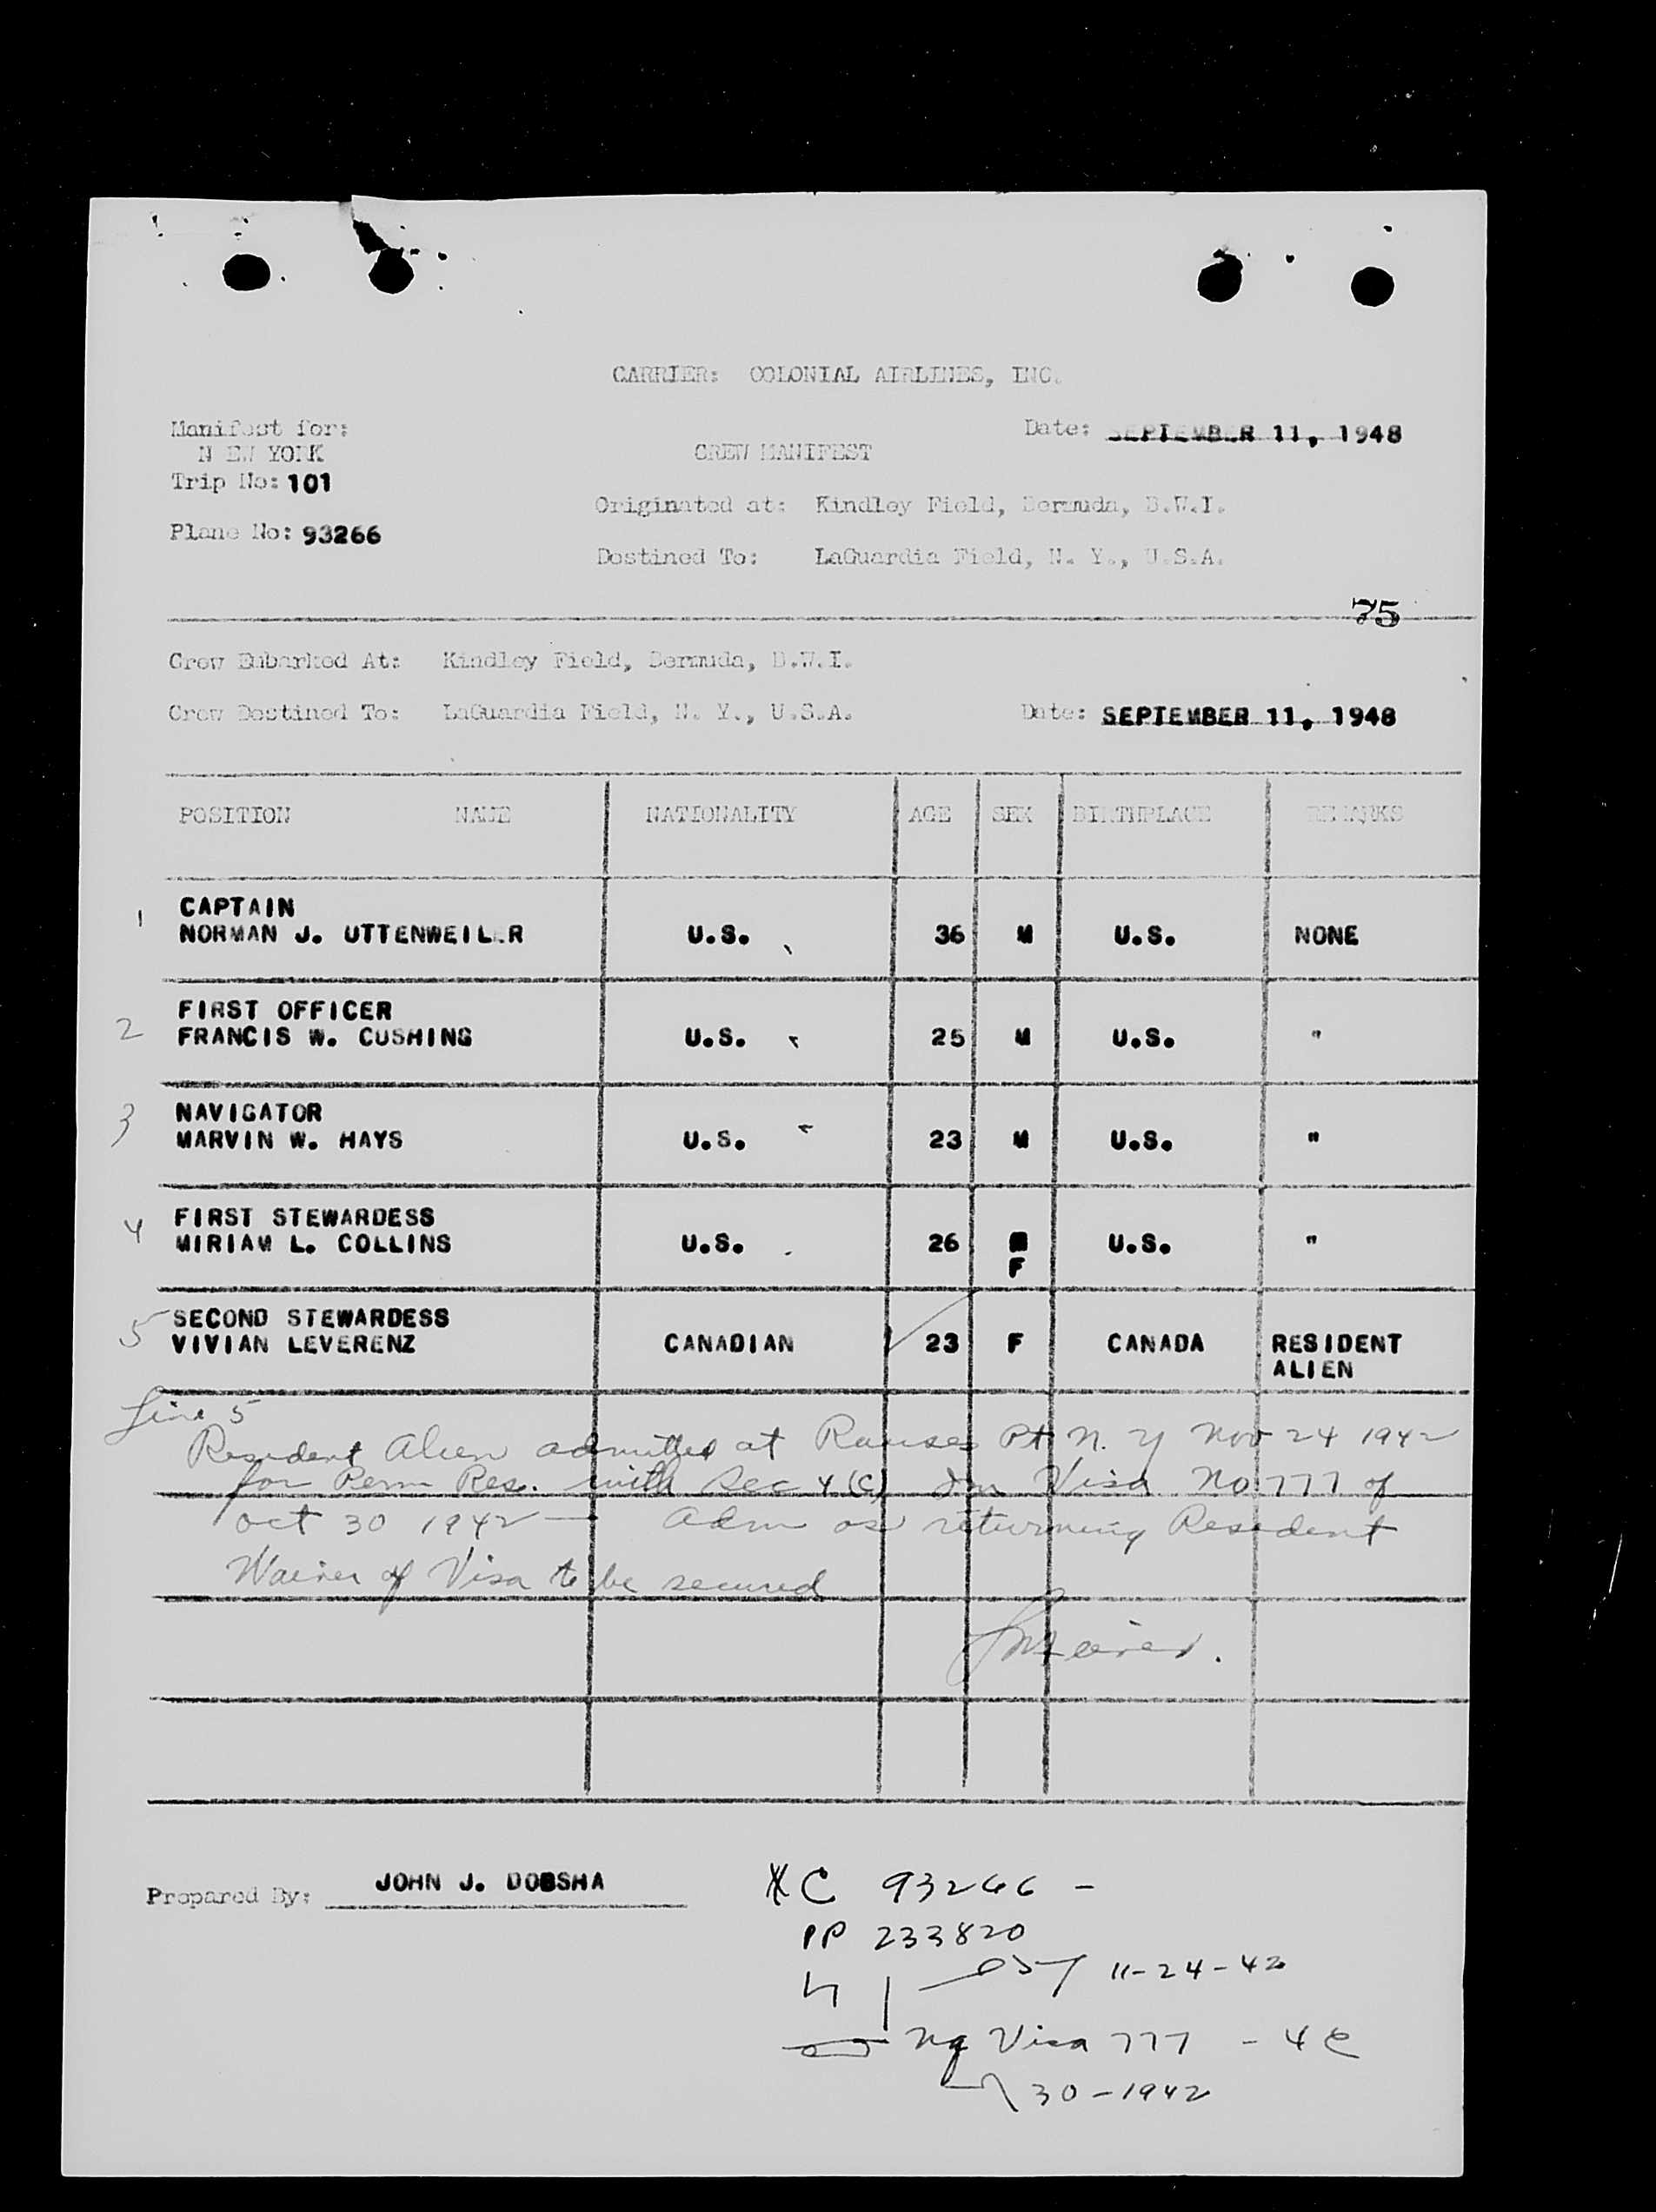 CARRIER: COLONIAL AIRLINES, INC.
Manifest for:
NEW YORK
Date: SEPTEMBER 11, 1948
CREW MANIFEST
Trip No: 101
Originated at: Kindley Field, Bermuda, B.W.I.
Plane No: 93266
Destined To: LaGuardia Field, N. Y., U.S.A.
75
Crew Embarked At: Kindley Field, Bermuda, B.W.I.
Crew Destined To: LaGuardia Field, N. Y., U.S.A. Date: SEPTEMBER 11, 1948
POSITION NAME NATIONALITY AGE SEX BIRTHPLACE REMARKS
CAPTAIN
1 NORMAN J. UTTENWEILER U.S. 36 M U.S. NONE
FIRST OFFICER
2 FRANCIS W. CUSHING U.S. 25 M U.S. "
NAVIGATOR
3 MARVIN W. HAYS U.S. 23 M U.S. "
FIRST STEWARDESS
4 MIRIAM L. COLLINS U.S. 26 F U.S. "
SECOND STEWARDESS
5 VIVIAN LEVERENZ CANADIAN 23 F CANADA RESIDENT
ALIEN
Line 5
Resident Alien admitted at Rouses Pt N. Y Nov 24 1942
for Perm Res. with Sec 4 (c) Visa No 777 of
Oct 30 1942 — Adm as returning Resident
Waiver of Visa to be secured
Prepared By: JOHN J. DOBSHA
C 93266 -
PP 233820
11-24-42
Visa 777 - 4 c
30-1942